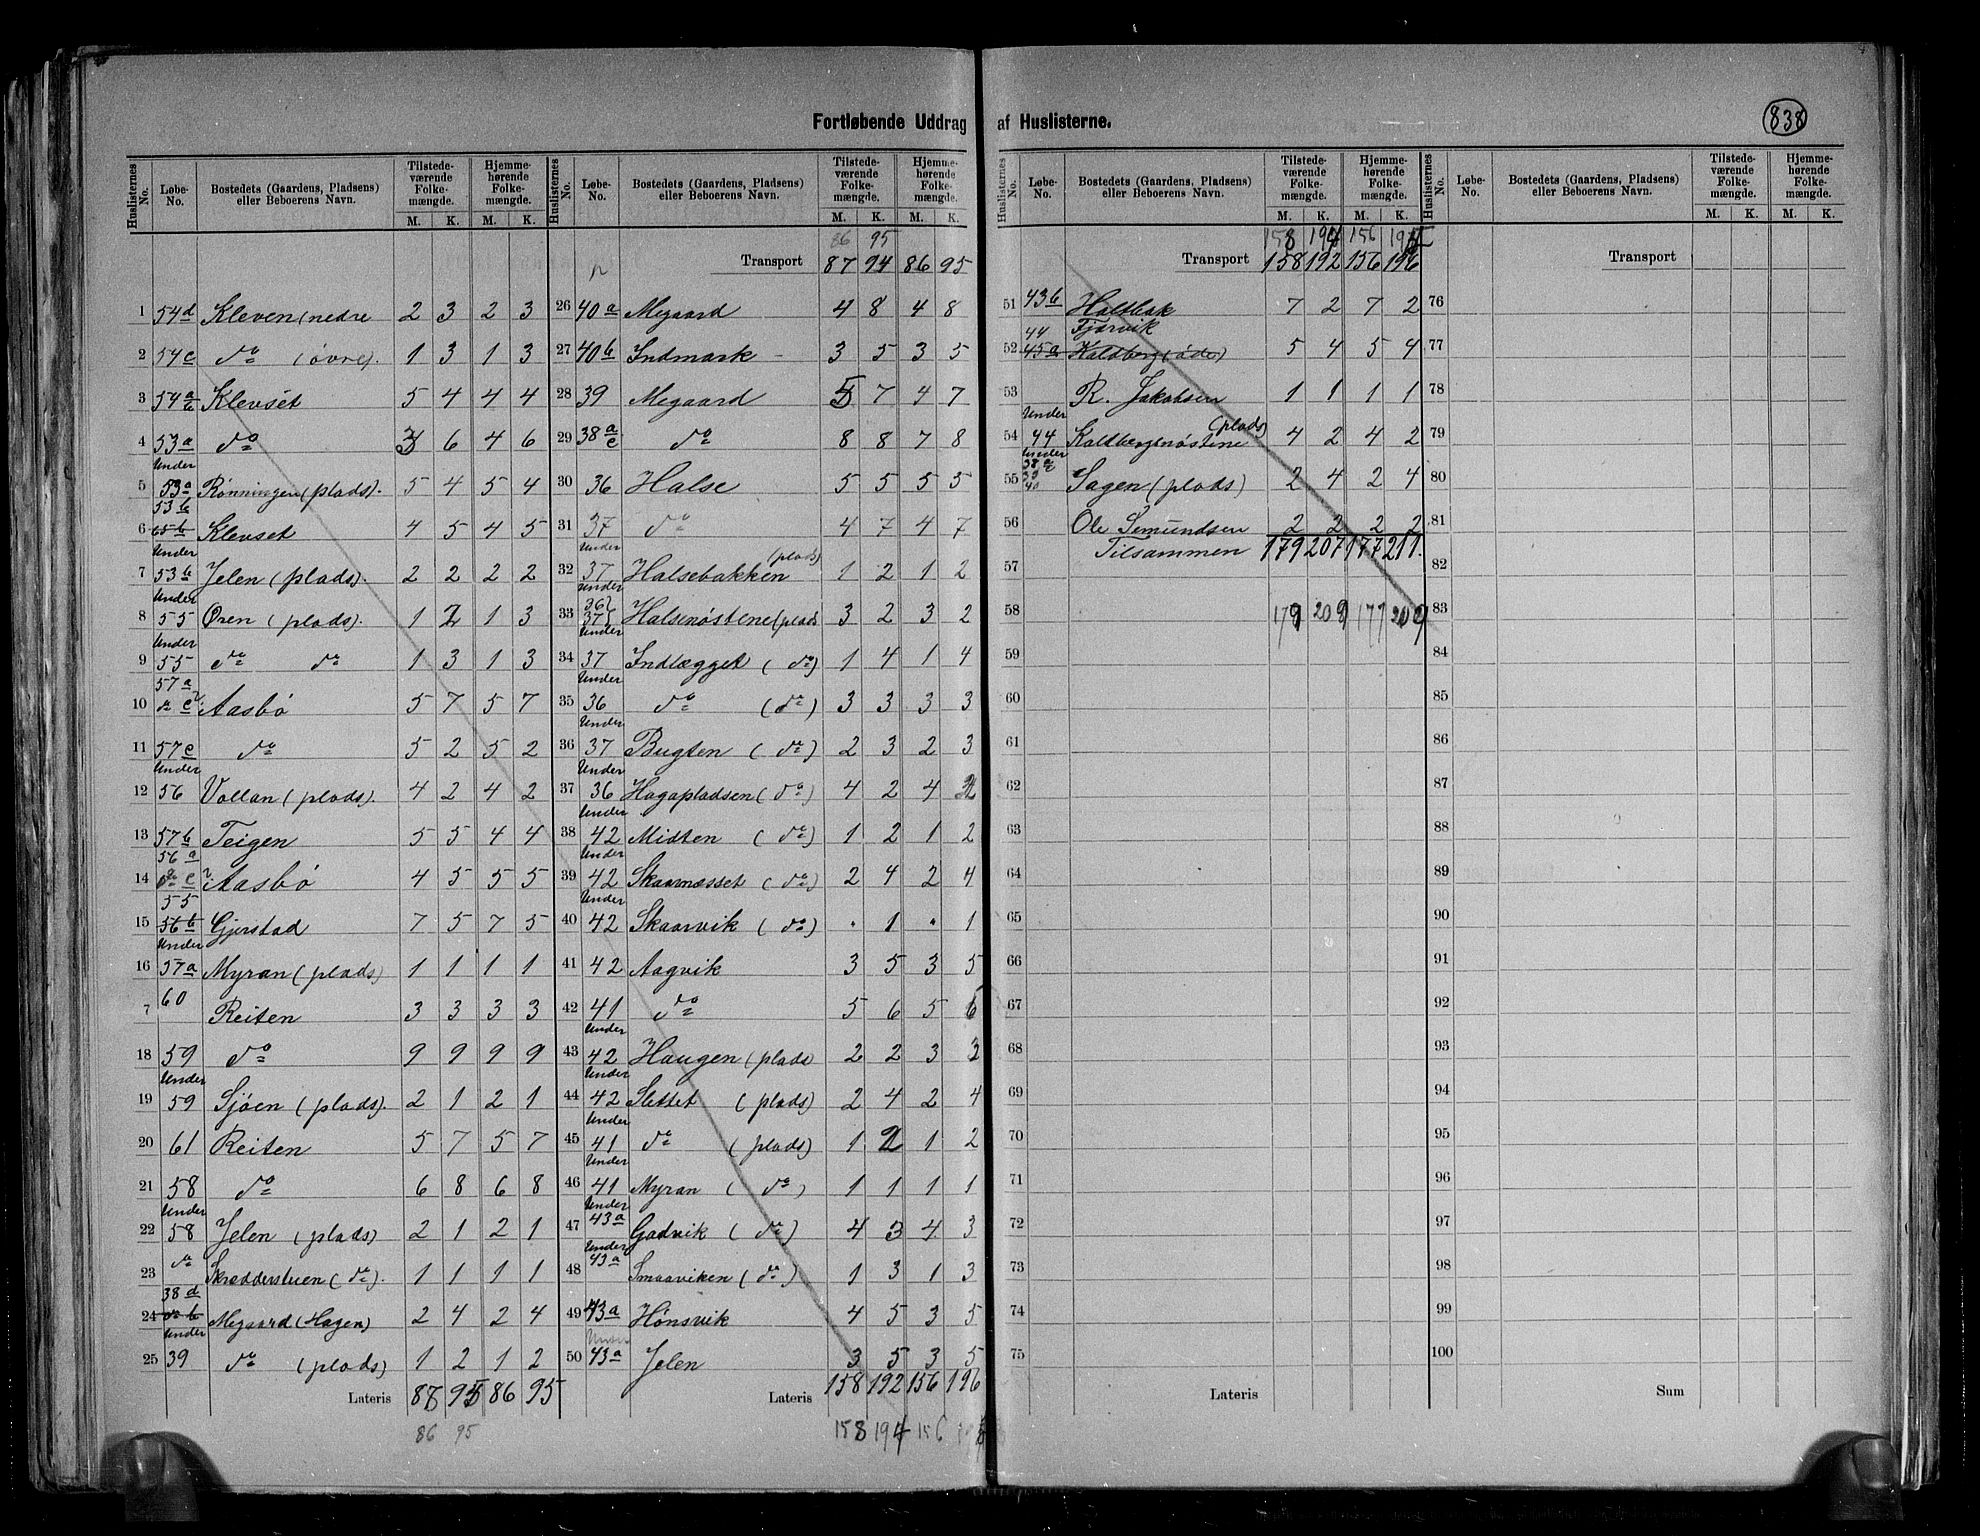 Fortløbende Uddrag af Huslisterne.
838
Huslisternes No. Løbe-No. Bostedets (Gaardens, Pladsens) eller Beboerens Navn. Tilstedeværende Folkemængde. M. K. Hjemmehørende Folkemængde. M. K.
1 54d Kleven (nedre 2 3 2 3
2 54c do (øvre). 1 3 1 3
3 54 a b Klevset 5 4 4 4
4 53a do 3 6 4 6
5 Under 53a Rønningen (plads). 5 4 5 4
6 53b Klevset 4 5 4 5
7 Under 53b Jelen (plads). 2 2 2 2
8 Under 55 Øren (plads). 1 2 1 3
9 Under 55 do do 1 3 1 3
10 57a c Aasbø 5 7 5 7
11 57c do 5 2 5 2
12 Under 56 Vollan (plads). 4 2 4 2
13 57b Teigen 5 5 4 4
14 56a c Aasbø 4 5 5 5
15 55 56b Gjerstad 7 5 7 5
16 Under 57a Myran (plads) 1 1 1 1
7 60 Reiten 3 3 3 3
18 59 do 9 9 9 9
19 Under 59 Sjøen (plads). 2 1 2 1
20 61 Reiten 5 7 5 7
21 58 do 6 8 6 8
22 Under 58 Jelen (plads) 2 1 2 1
23 do Skrædderstuen (do). 1 1 1 1
24 38d Megaard (Hagen) 2 4 2 4
25 Under 39 do (plads) 1 2 1 2
Lateris 87 95 86 95
86 95
Huslisternes No. Løbe-No. Bostedets (Gaardens, Pladsens) eller Beboerens Navn. Tilstedeværende Folkemængde. M. K. Hjemmehørende Folkemængde. M. K.
86 95
Transport 87 94 86 95
26 40a Megaard 4 8 4 8
27 40b Indmark 3 5 3 5
28 39 Megaard 5 7 4 7
29 38 a c do 8 8 7 8
30 36 Halse 5 5 5 5
31 37 do 4 7 4 7
32 Under 37 Halsebakken (plads) 1 2 1 2
33 Under 36 37 Halsenøstene (plads 3 2 3 2
34 Under 37 Indlægget (do) 1 4 1 4
35 Under 36 do (do) 3 3 3 3
36 Under 37 Bugten (do) 2 3 2 3
37 Under 36 Hagapladsen (do) 4 2 4 2
38 Under 42 Midten (do) 1 2 1 2
39 Under 42 Skaarnæsset (do) 2 4 2 4
40 Under 42 Skaarvik (do) " 1 " 1
41 42 Aagvik 3 5 3 5
42 41 do 5 6 5 6
43 Under 42 Haugen (plads 2 2 3 3
44 Under 42 Slettet (plads) 2 4 2 4
45 Under 41 do (plads) 1 2 1 2
46 Under 41 Myran (do) 1 1 1 1
47 Under 43a Godvik (do) 4 3 4 3
48 Under 43a Smaaviken (do) 1 3 1 3
49 43a Hønsvik 4 5 3 5
50 Under 43a Jelen 3 5 3 5
Lateris 158 192 156 196
158 194 156
Huslisternes No. Løbe-No. Bostedets (Gaardens, Pladsens) eller Beboerens Navn. Tilstedeværende Folkemængde. M. K. Hjemmehørende Folkemængde. M. K.
158 194 156
Transport 158 192 156 196
51 43b Haltbak 7 2 7 2
52 44 Fjørvik 45a Kaldberg (øde) 5 4 5 4
53 R. Jakobsen 1 1 1 1
54 Under 44 Kaldbergsnøstene (plads) 4 2 4 2
55 Under 38a 39 40 Sagen (plads) 2 4 2 4
56 Ole Semundsen 2 2 2 2
Tilsammen 179 207 177 211.
57
58 179 209 177 209
59
60
61
62
63
64
65
66
67
68
69
70
71
72
73
74
75
Lateris
Huslisternes No. Løbe-No. Bostedets (Gaardens, Pladsens) eller Beboerens Navn. Tilstedeværende Folkemængde. M. K. Hjemmehørende Folkemængde. M. K.
Transport
76
77
78
79
80
81
82
83
84
85
86
87
88
89
90
91
92
93
94
95
96
97
98
99
100
Sum